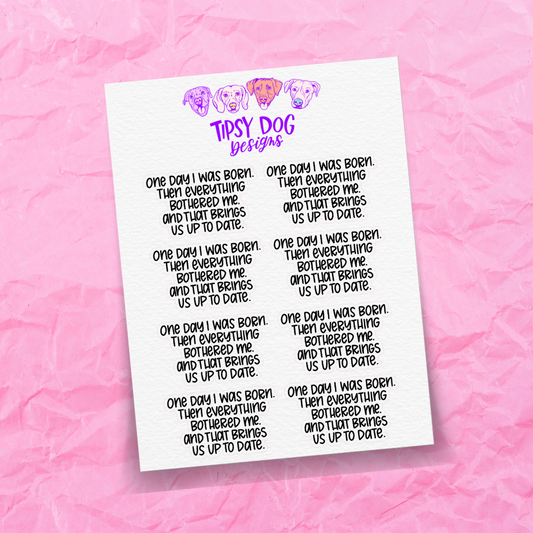 TIPSY DOG
Designs
ONE DAY I WAS BORN.
THEN EVERYTHING
BOTHERED ME.
AND THAT BRINGS
US UP TO DATE.
ONE DAY I WAS BORN.
THEN EVERYTHING
BOTHERED ME.
AND THAT BRINGS
US UP TO DATE.
ONE DAY I WAS BORN.
THEN EVERYTHING
BOTHERED ME.
AND THAT BRINGS
US UP TO DATE.
ONE DAY I WAS BORN.
THEN EVERYTHING
BOTHERED ME.
AND THAT BRINGS
US UP TO DATE.
ONE DAY I WAS BORN.
THEN EVERYTHING
BOTHERED ME.
AND THAT BRINGS
US UP TO DATE.
ONE DAY I WAS BORN.
THEN EVERYTHING
BOTHERED ME.
AND THAT BRINGS
US UP TO DATE.
ONE DAY I WAS BORN.
THEN EVERYTHING
BOTHERED ME.
AND THAT BRINGS
US UP TO DATE.
ONE DAY I WAS BORN.
THEN EVERYTHING
BOTHERED ME.
AND THAT BRINGS
US UP TO DATE.